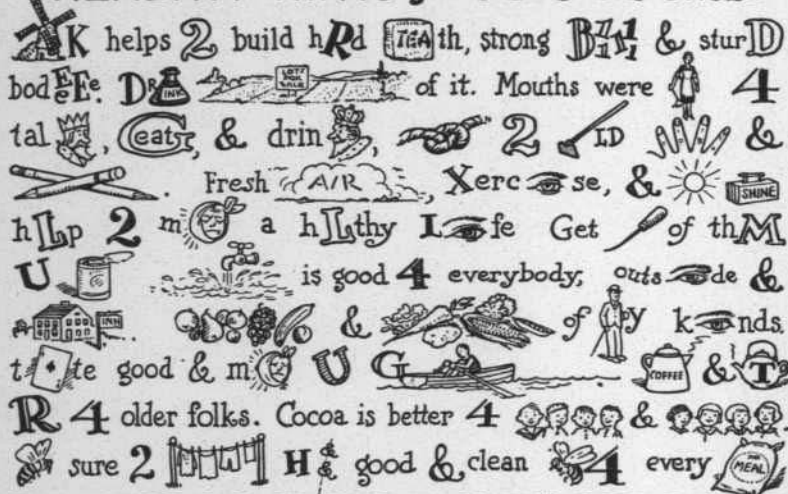 K helps 2 build hRd TEA th, strong B111 & sturD
bodEEEe. Dr INK LOTS FOR SALE of it. Mouths were 4
tal , G eat , & drin , 2 LD &
. Fresh AIR , Xerc se, & SHINE
hLp 2 m a hLthy L fe Get of thM
U is good 4 everybody, outs de &
INN & of y k nds
t te good & m U G COFFEE & T
R 4 older folks. Cocoa is better 4 & .
sure 2 H& good & clean 4 every MEAL